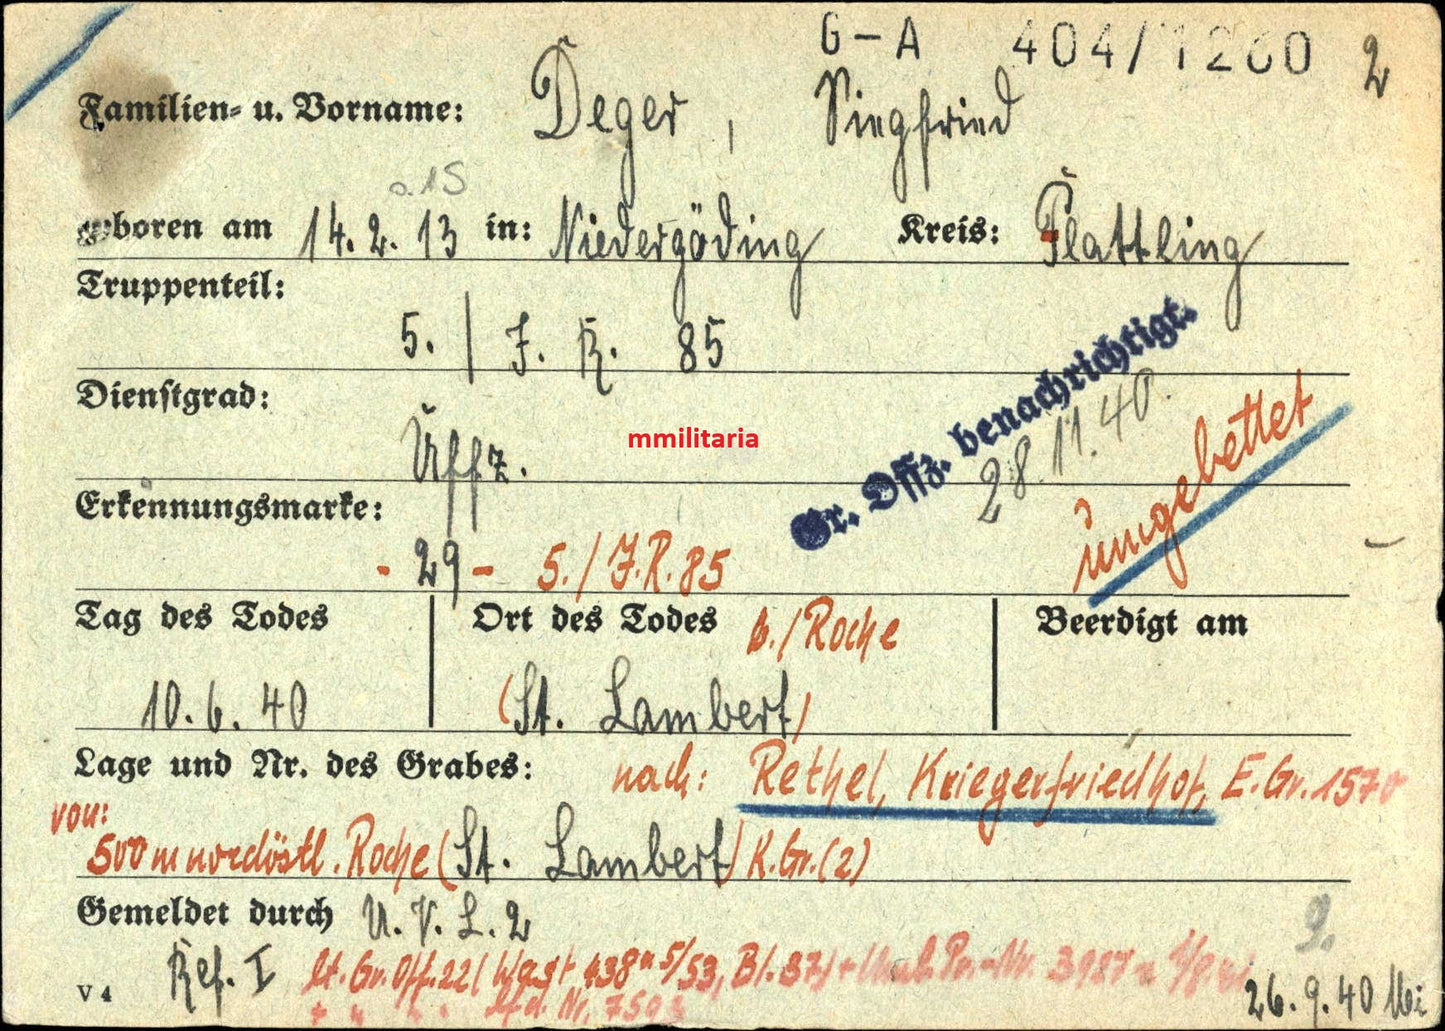 G-A 404/1260 2
Familien- u. Vorname: Deger, Siegfried
a. 15
geboren am 14.2.13 in: Niedergöding Kreis: Plattling
Truppenteil:
5. / J. R. 85
Gr. Offz. benachrichtigt.
28.11.40.
Dienstgrad:
Uffz.
mmilitaria
umgebettet
Erkennungsmarke:
- 29 - 5./J.R.85
Tag des Todes Ort des Todes b./Roche Beerdigt am
10.6.40 (St. Lambert)
Lage und Nr. des Grabes: nach: Rethel, Kriegerfriedhof, E.Gr. 1570
von:
500 m nordöstl. Roche (St. Lambert) K.Gr.(2)
Gemeldet durch U. V. L. 2
9.
Ref. I lt. Gr. Off. 22 ( Wgast 438 5/53, Bl. 37) + Nr. 3987
V 4 Lfd. Nr. 26.9.40